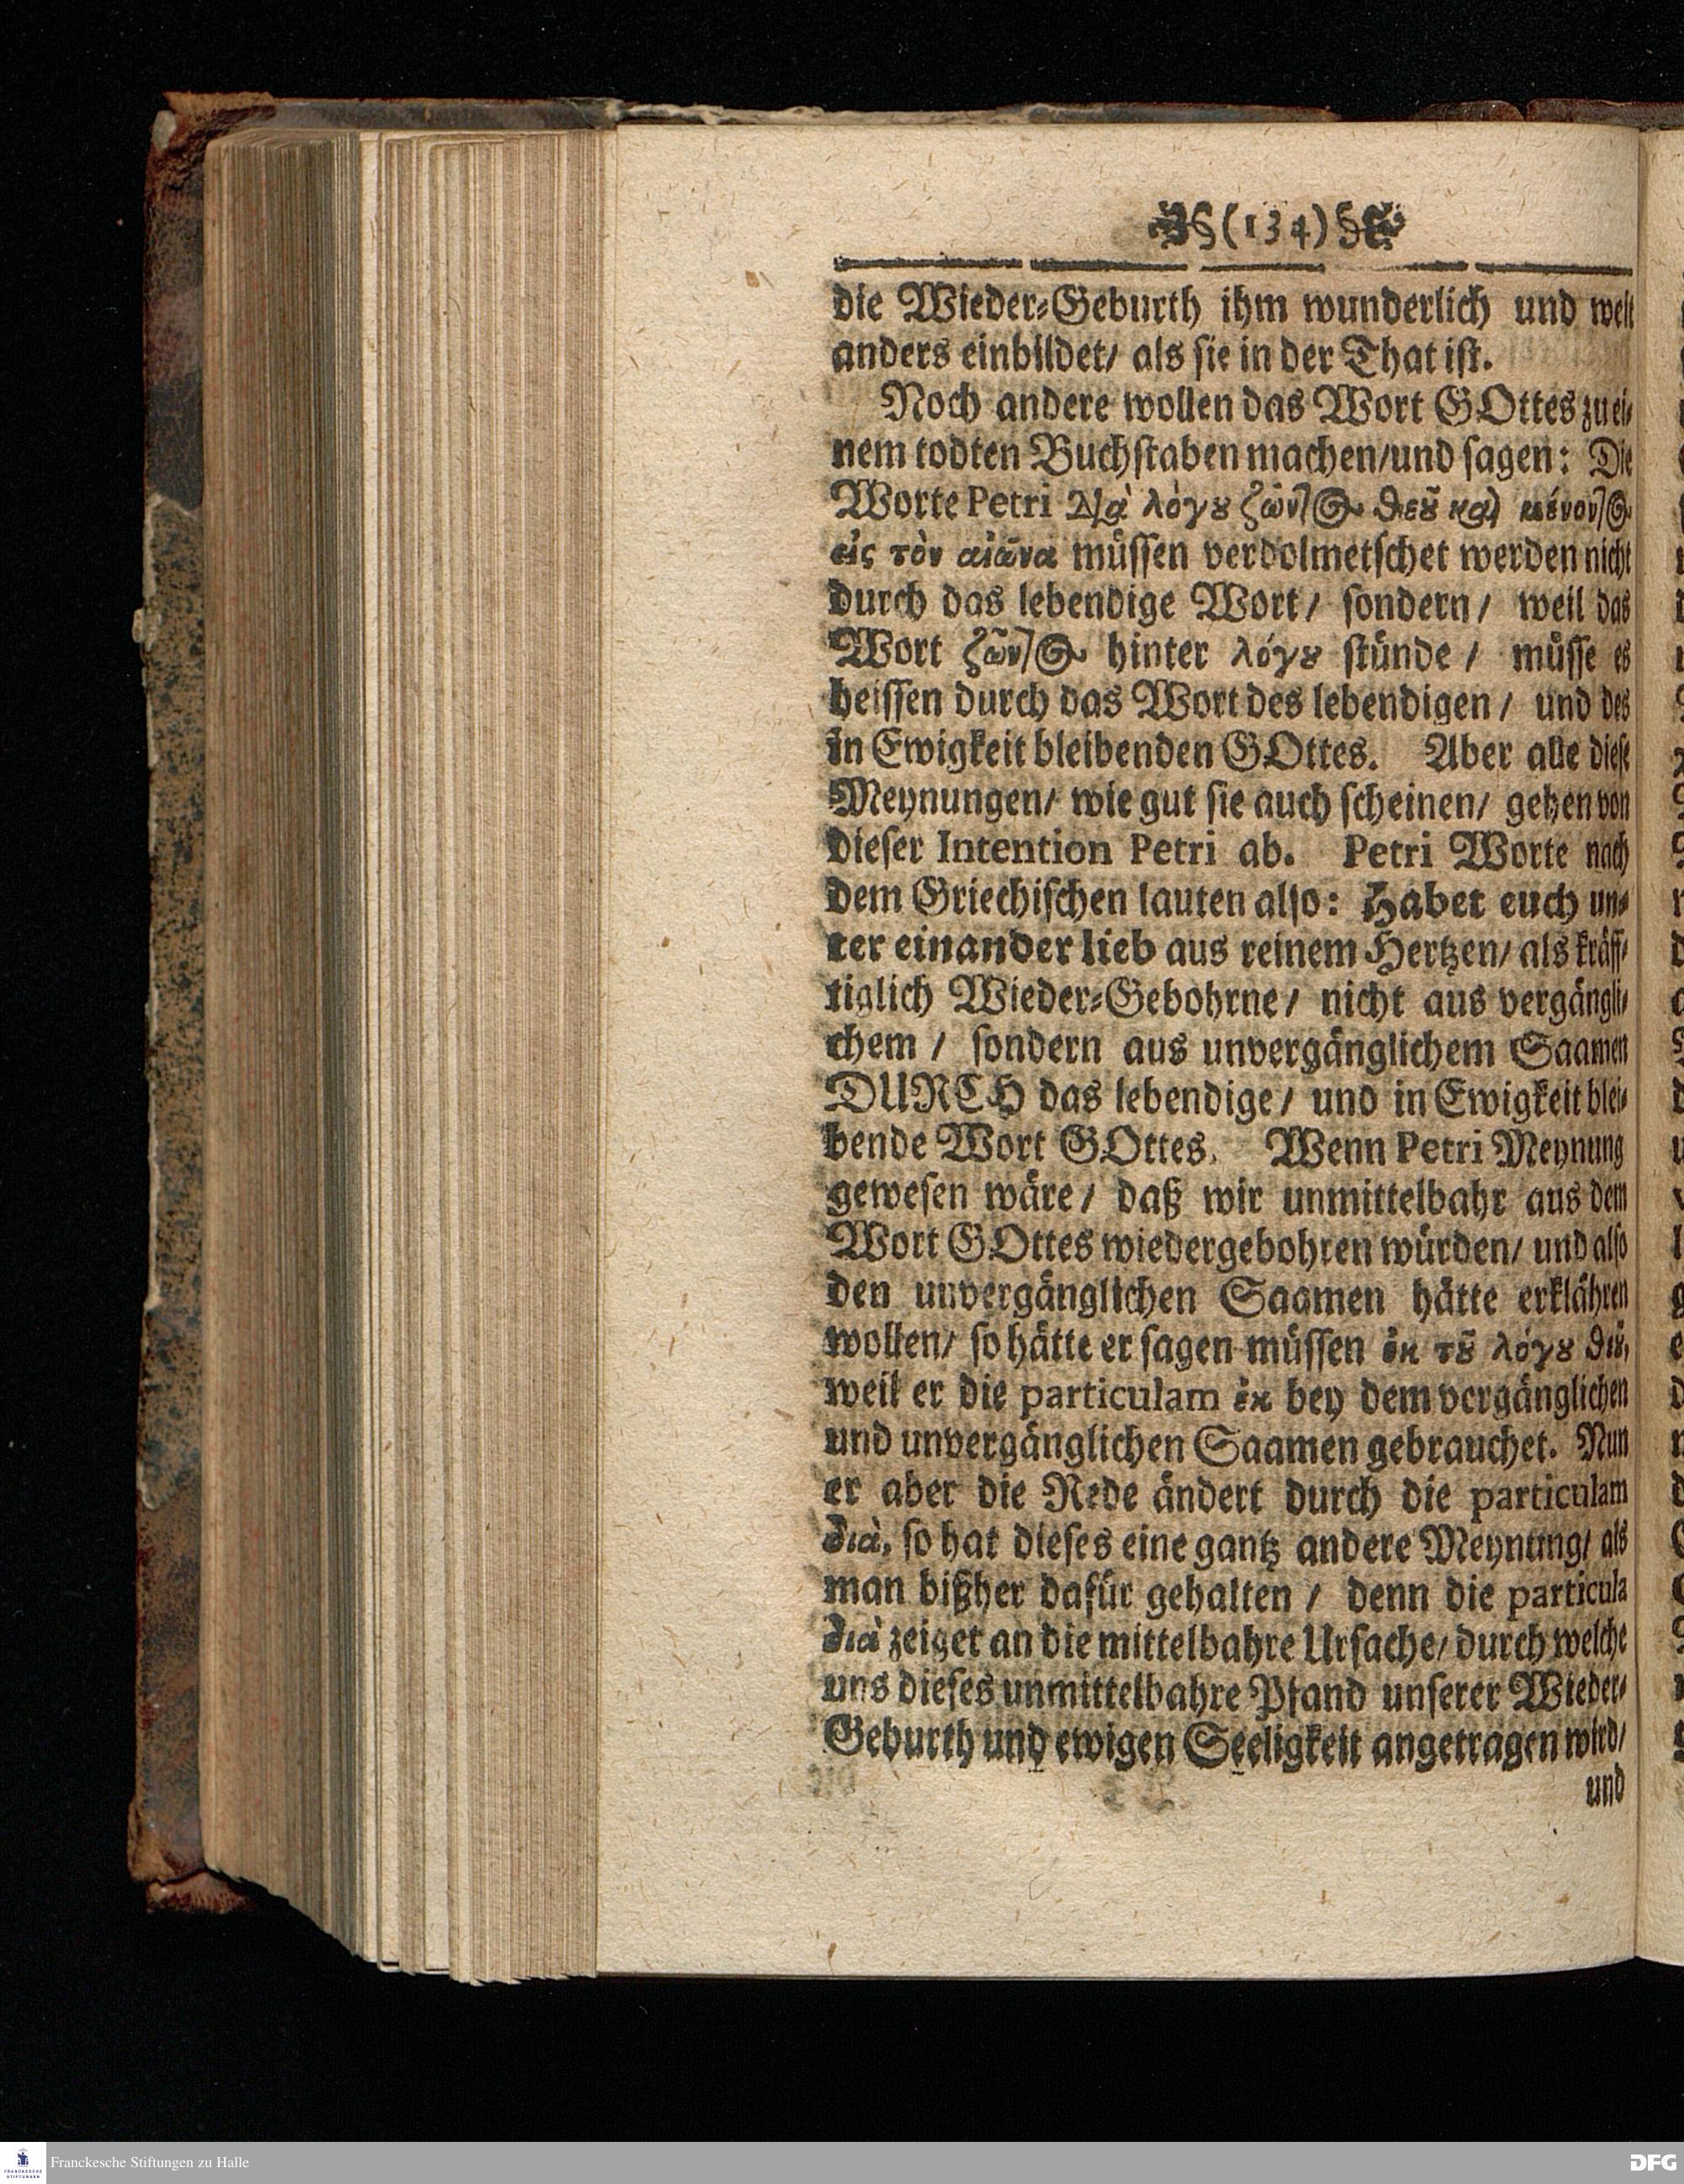 (134)
die Wieder-Geburth ihm wunderlich und weit
anders einbildet/ als sie in der That ist.
Noch andere wollen das Wort GOttes zu ei-
nem todten Buchstaben machen/und sagen: Die
Worte Petri διὰ λόγȣ ζῶντος θεȣ͂ καὶ μένοντος
εἰς τὸν αἰῶνα müssen verdolmetschet werden nicht
durch das lebendige Wort/ sondern/ weil das
Wort ζῶντος hinter λόγȣ stünde / müsse es
heissen durch das Wort des lebendigen / und des
in Ewigkeit bleibenden GOttes. Aber alle diese
Meynungen/ wie gut sie auch scheinen/ gehen von
dieser Intention Petri ab. Petri Worte nach
dem Griechischen lauten also: Habet euch un-
ter einander lieb aus reinem Hertzen/ als kräff-
tiglich Wieder-Gebohrne/ nicht aus vergängli-
chem / sondern aus unvergänglichem Saamen
DURCH das lebendige/ und in Ewigkeit blei-
bende Wort GOttes. Wenn Petri Meynung
gewesen wäre/ daß wir unmittelbahr aus dem
Wort GOttes wiedergebohren würden/ und also
den unvergänglichen Saamen hätte erklähren
wollen/ so hätte er sagen müssen ἐκ τȣ͂ λόγȣ θεȣ͂,
weil er die particulam ἐκ bey dem vergänglichen
und unvergänglichen Saamen gebrauchet. Nun
er aber die Rede ändert durch die particulam
διὰ, so hat dieses eine gantz andere Meynung/ als
man bißher dafür gehalten / denn die particula
διὰ zeiget an die mittelbahre Ursache/ durch welche
uns dieses unmittelbahre Pfand unserer Wieder-
Geburth und ewigen Seeligkeit angetragen wird/
und
FRANCKESCHE STIFTUNGEN
Franckesche Stiftungen zu Halle
DFG